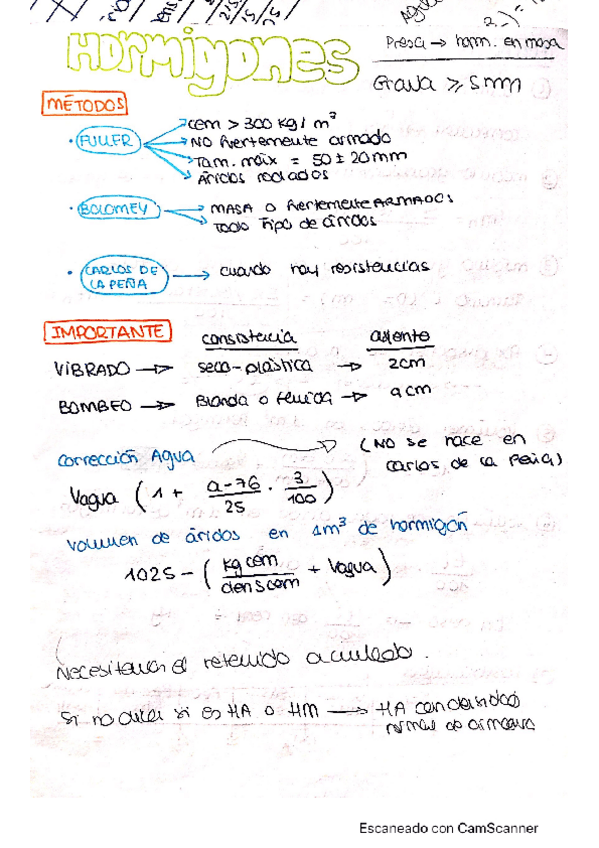 Hormigones
Presa → horm. en masa
Grava ≥ 5mm
MÉTODOS
· FULLER → cem > 300 kg/m³
→ NO fuertemente armado
→ Tam. máx = 50 ± 20 mm
→ Áridos rodados
· BOLOMEY → MASA o fuertemente ARMADOS
→ todo tipo de áridos
· CARLOS DE LA PEÑA → cuando hay resistencias
IMPORTANTE
consistencia asiento
VIBRADO → seco-plástica → 2cm
BOMBEO → Blanda o fluida → 9cm
corrección Agua → (NO se hace en
carlos de la Peña)
Vagua (1 + a-76/25 · 3/100)
volumen de áridos en 1m³ de hormigón
1025 - (kg cem/dens cem + Vagua)
Necesitamos el retenido acumulado.
Si no dicen si es HA o HM → HA con densidad
normal de armadura
Escaneado con CamScanner